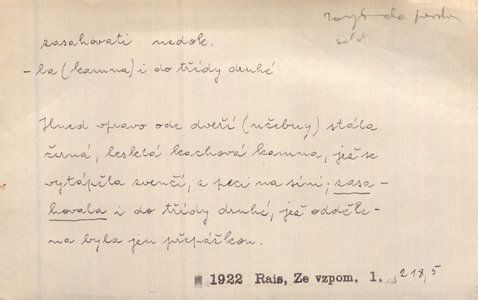 zasahovati nedok.
– la (kamna) i do třídy druhé
Hned vpravo ode dveří (učebny) stála
černá, lesklá kachlová kamna, jež se
vytápěla zvenčí, z peci na síni; zasa-
hovala i do třídy druhé, jež odděle-
na byla jen přepážkou.
1922 Rais, Ze vzpom. 1. 218,5